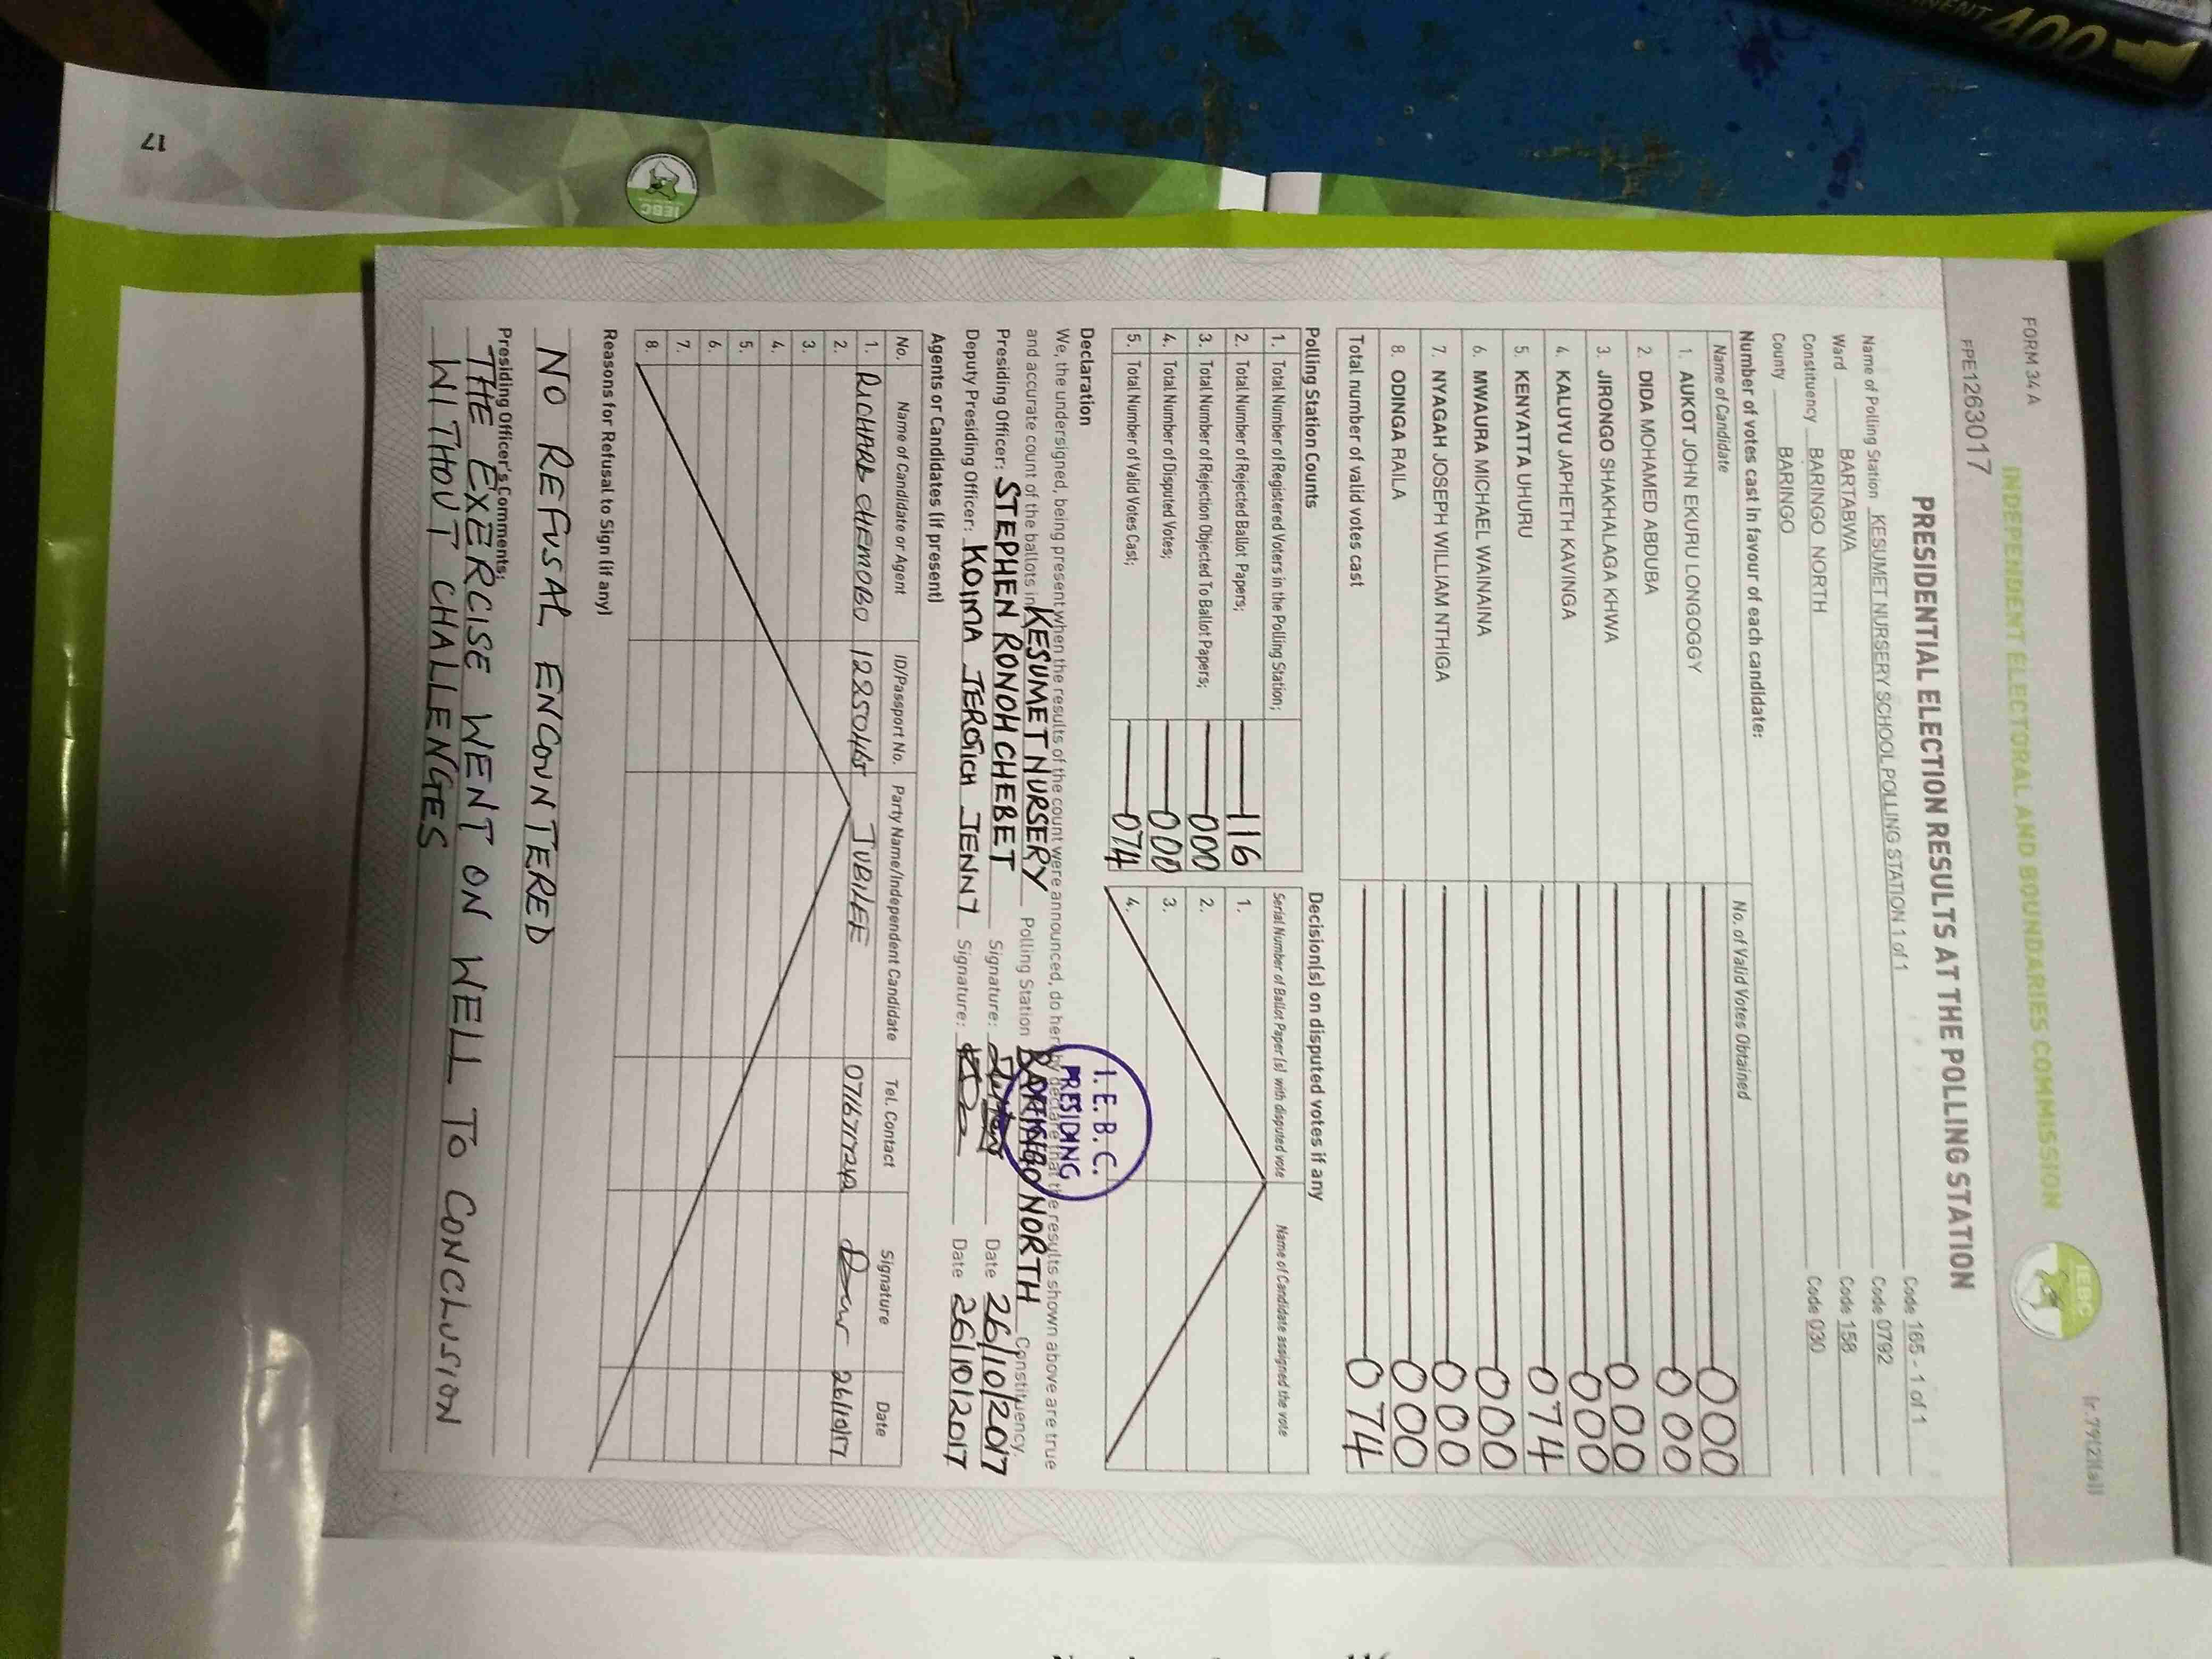 FORM 34 A
lr.7912)(a)]
INDEPENDENT ELECTORAL AND BOUNDARIES COMMISSION
IEBC
FPE1263017
PRESIDENTIAL ELECTION RESULTS AT THE POLLING STATION
Name of Polling Station KESUMET NURSERY SCHOOL POLLING STATION 1 of 1 Code 165 - 1 of 1
Ward BARTABWA Code 0792
Constituency BARINGO NORTH Code 158
County BARINGO Code 030
Number of votes cast in favour of each candidate:
Name of Candidate No. of Valid Votes Obtained
1. AUKOT JOHN EKURU LONGOGGY 000
2. DIDA MOHAMED ABDUBA 000
3. JIRONGO SHAKHALAGA KHWA 000
4. KALUYU JAPHETH KAVINGA 000
5. KENYATTA UHURU 074
6. MWAURA MICHAEL WAINAINA 000
7. NYAGAH JOSEPH WILLIAM NTHIGA 000
8. ODINGA RAILA 000
Total number of valid votes cast 074
Polling Station Counts Decision(s) on disputed votes if any
1. Total Number of Registered Voters in the Polling Station; 116
2. Total Number of Rejected Ballot Papers; 000
3. Total Number of Rejection Objected To Ballot Papers; 000
4. Total Number of Disputed Votes; 000
5. Total Number of Valid Votes Cast; 074
Serial Number of Ballot Paper (s) with disputed vote Name of Candidate assigned the vote
1.
2.
3.
4.
Declaration
We, the undersigned, being present when the results of the count were announced, do hereby declare that the results shown above are true
and accurate count of the ballots in KESUMET NURSERY Polling Station BARINGO NORTH Constituency.
I.E.B.C.
PRESIDING
Presiding Officer: STEPHEN RONOH CHEBET Signature: Date 26/10/2017
Deputy Presiding Officer: KOIMA JEROTICH JENNY Signature: Date 26/10/2017
Agents or Candidates (if present)
No. Name of Candidate or Agent ID/Passport No. Party Name/Independent Candidate Tel. Contact Signature Date
1. RICHARD CHEMOBO JUBILEE 26/10/17
2.
3.
4.
5.
6.
7.
8.
Reasons for Refusal to Sign (if any)
NO REFUSAL ENCOUNTERED
Presiding Officer's Comments:
THE EXERCISE WENT ON WELL TO CONCLUSION
WITHOUT CHALLENGES
17
IEBC
400